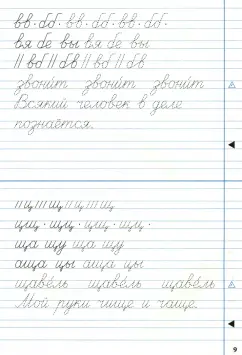 вв · бб · вв · бб · вв · бб ·
вя бе вы вя бе вы
вб бв вб бв
звони́т звони́т звони́т
Всякий человек в деле
познаётся.
щ щ щ щ
цщ · щц · цщ · щц ·
ща щу ща щу
аща цы аща цы
щаве́ль щаве́ль щаве́ль
Мой руки чище и чаще.
9